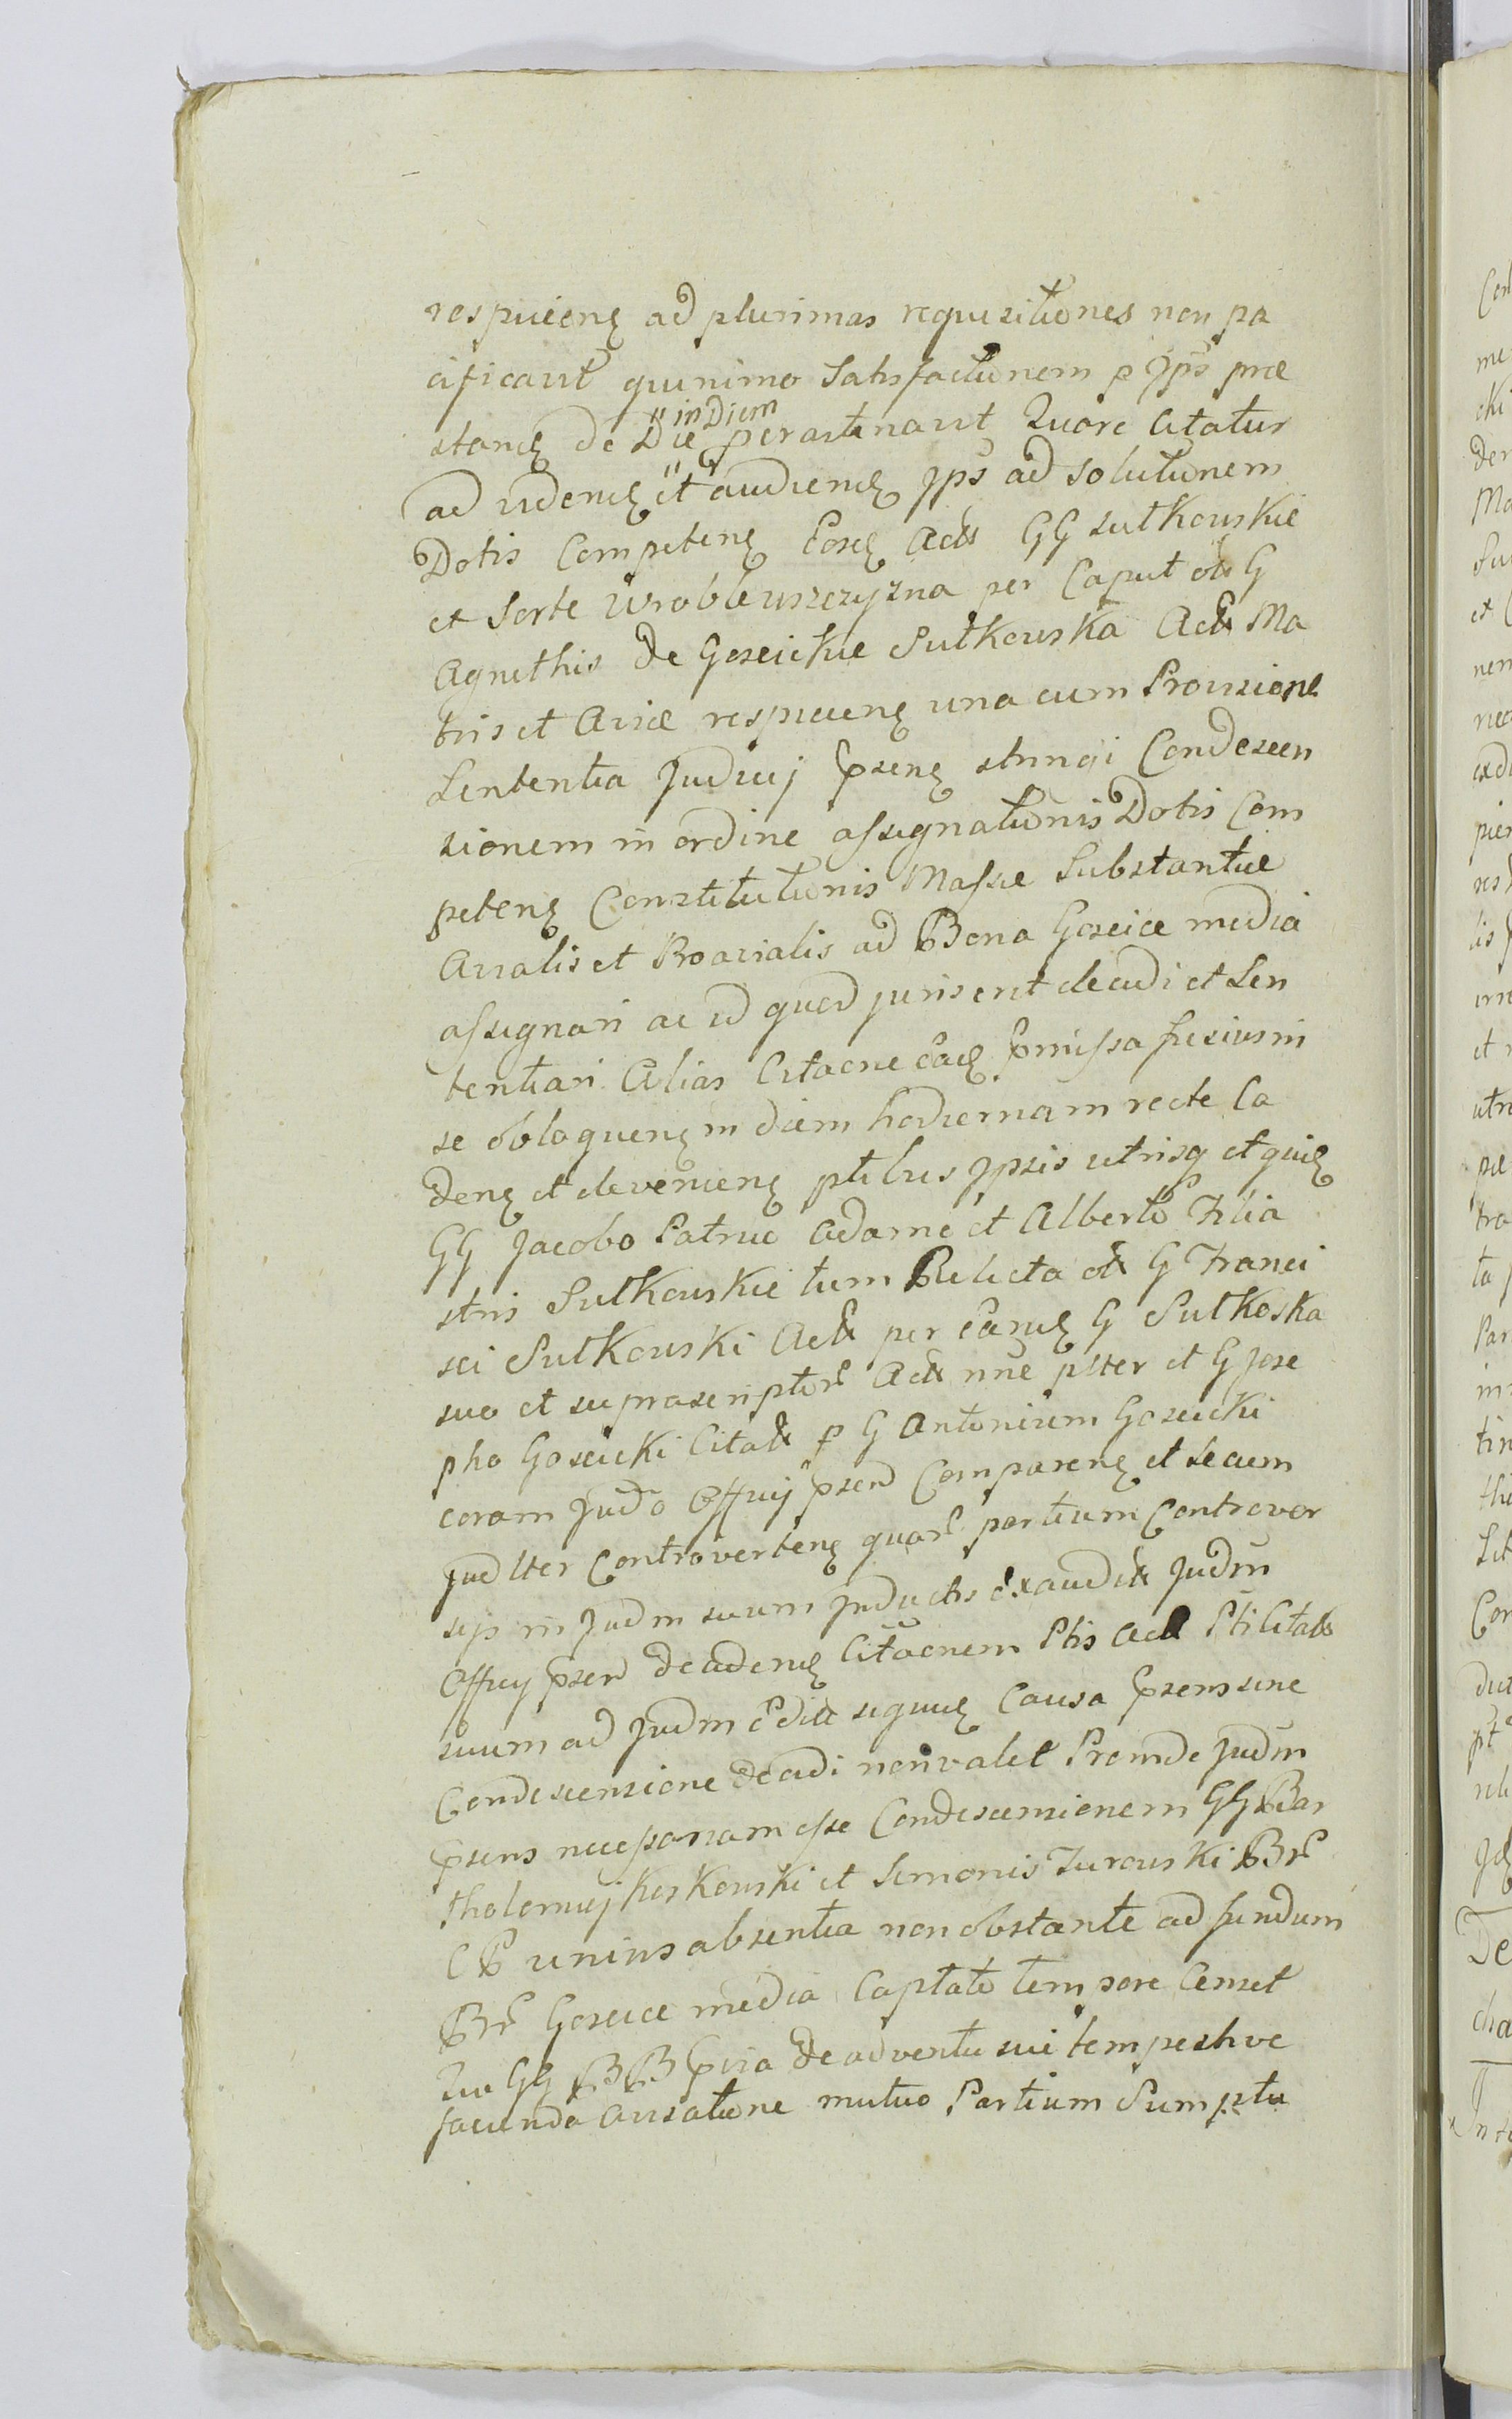 respicieng ad plurimas requisitiones non pa
cificavit quinimo Satisfactionem p Jps præ
stang de Die in Diem perastinavit Quare Citatur
ad videndg et audiendg Jps ad Solutionem
Dotis Competeng Eosdg Acts GG Sutkowskie
et Sorte Wroblewszczyzna per Caput olim G
Agnethis de Gozeickie Sutkowska Acts Ma
tris et Aviæ respicieng una cum Provisione
Sententia Judicij Pseng stringi Condescen
sionem in ordine assignationis Dotis Com
peteng Constitutionis Massæ Substantiæ
Avialis et Proavialis ad Bona Gozeice media
assignari ac id quod juris erit decidi et Sen
tentiari Alias Citaone Eadg Pmissa fusius in
se obloqueng in diem hodiernam recte Ca
deng et devenieng ptibus Jpsis utrisq et quidg
GG Jacobo Patruo Adamo et Alberto Filia
stris Sutkowskie tum Relicta olim G Franci
sci Sutkowski Acts per Eandg G Sutkoska
suo et suprascriptor Acts nne pltter et G Jose
pho Gozeicki Citats p G Antonium Gozeicki
coram Judo Officij Psen Compareng et Secum
Judlter Controverteng quar partium Controver
sijs in Judm suum Jnductis Exauditis Judm
Officij Psen decidendg Citaonem Ptis Acts Pti Citats
suum ad Judm Edits siquidg Causa Psens sine
Condescensione decidi non valet Proinde Judm
Psens necessariam esse Condescensionem GG Bar
tholomej Koskowski et Simonis Zurowski Br
CP unius absentia non obstante ad fundum
Br Gozeice media Captato tempore Censet
Quo GG BB Pvia de adventu sui tempestive
facienda Avisatione mutuo Partium Sumptu